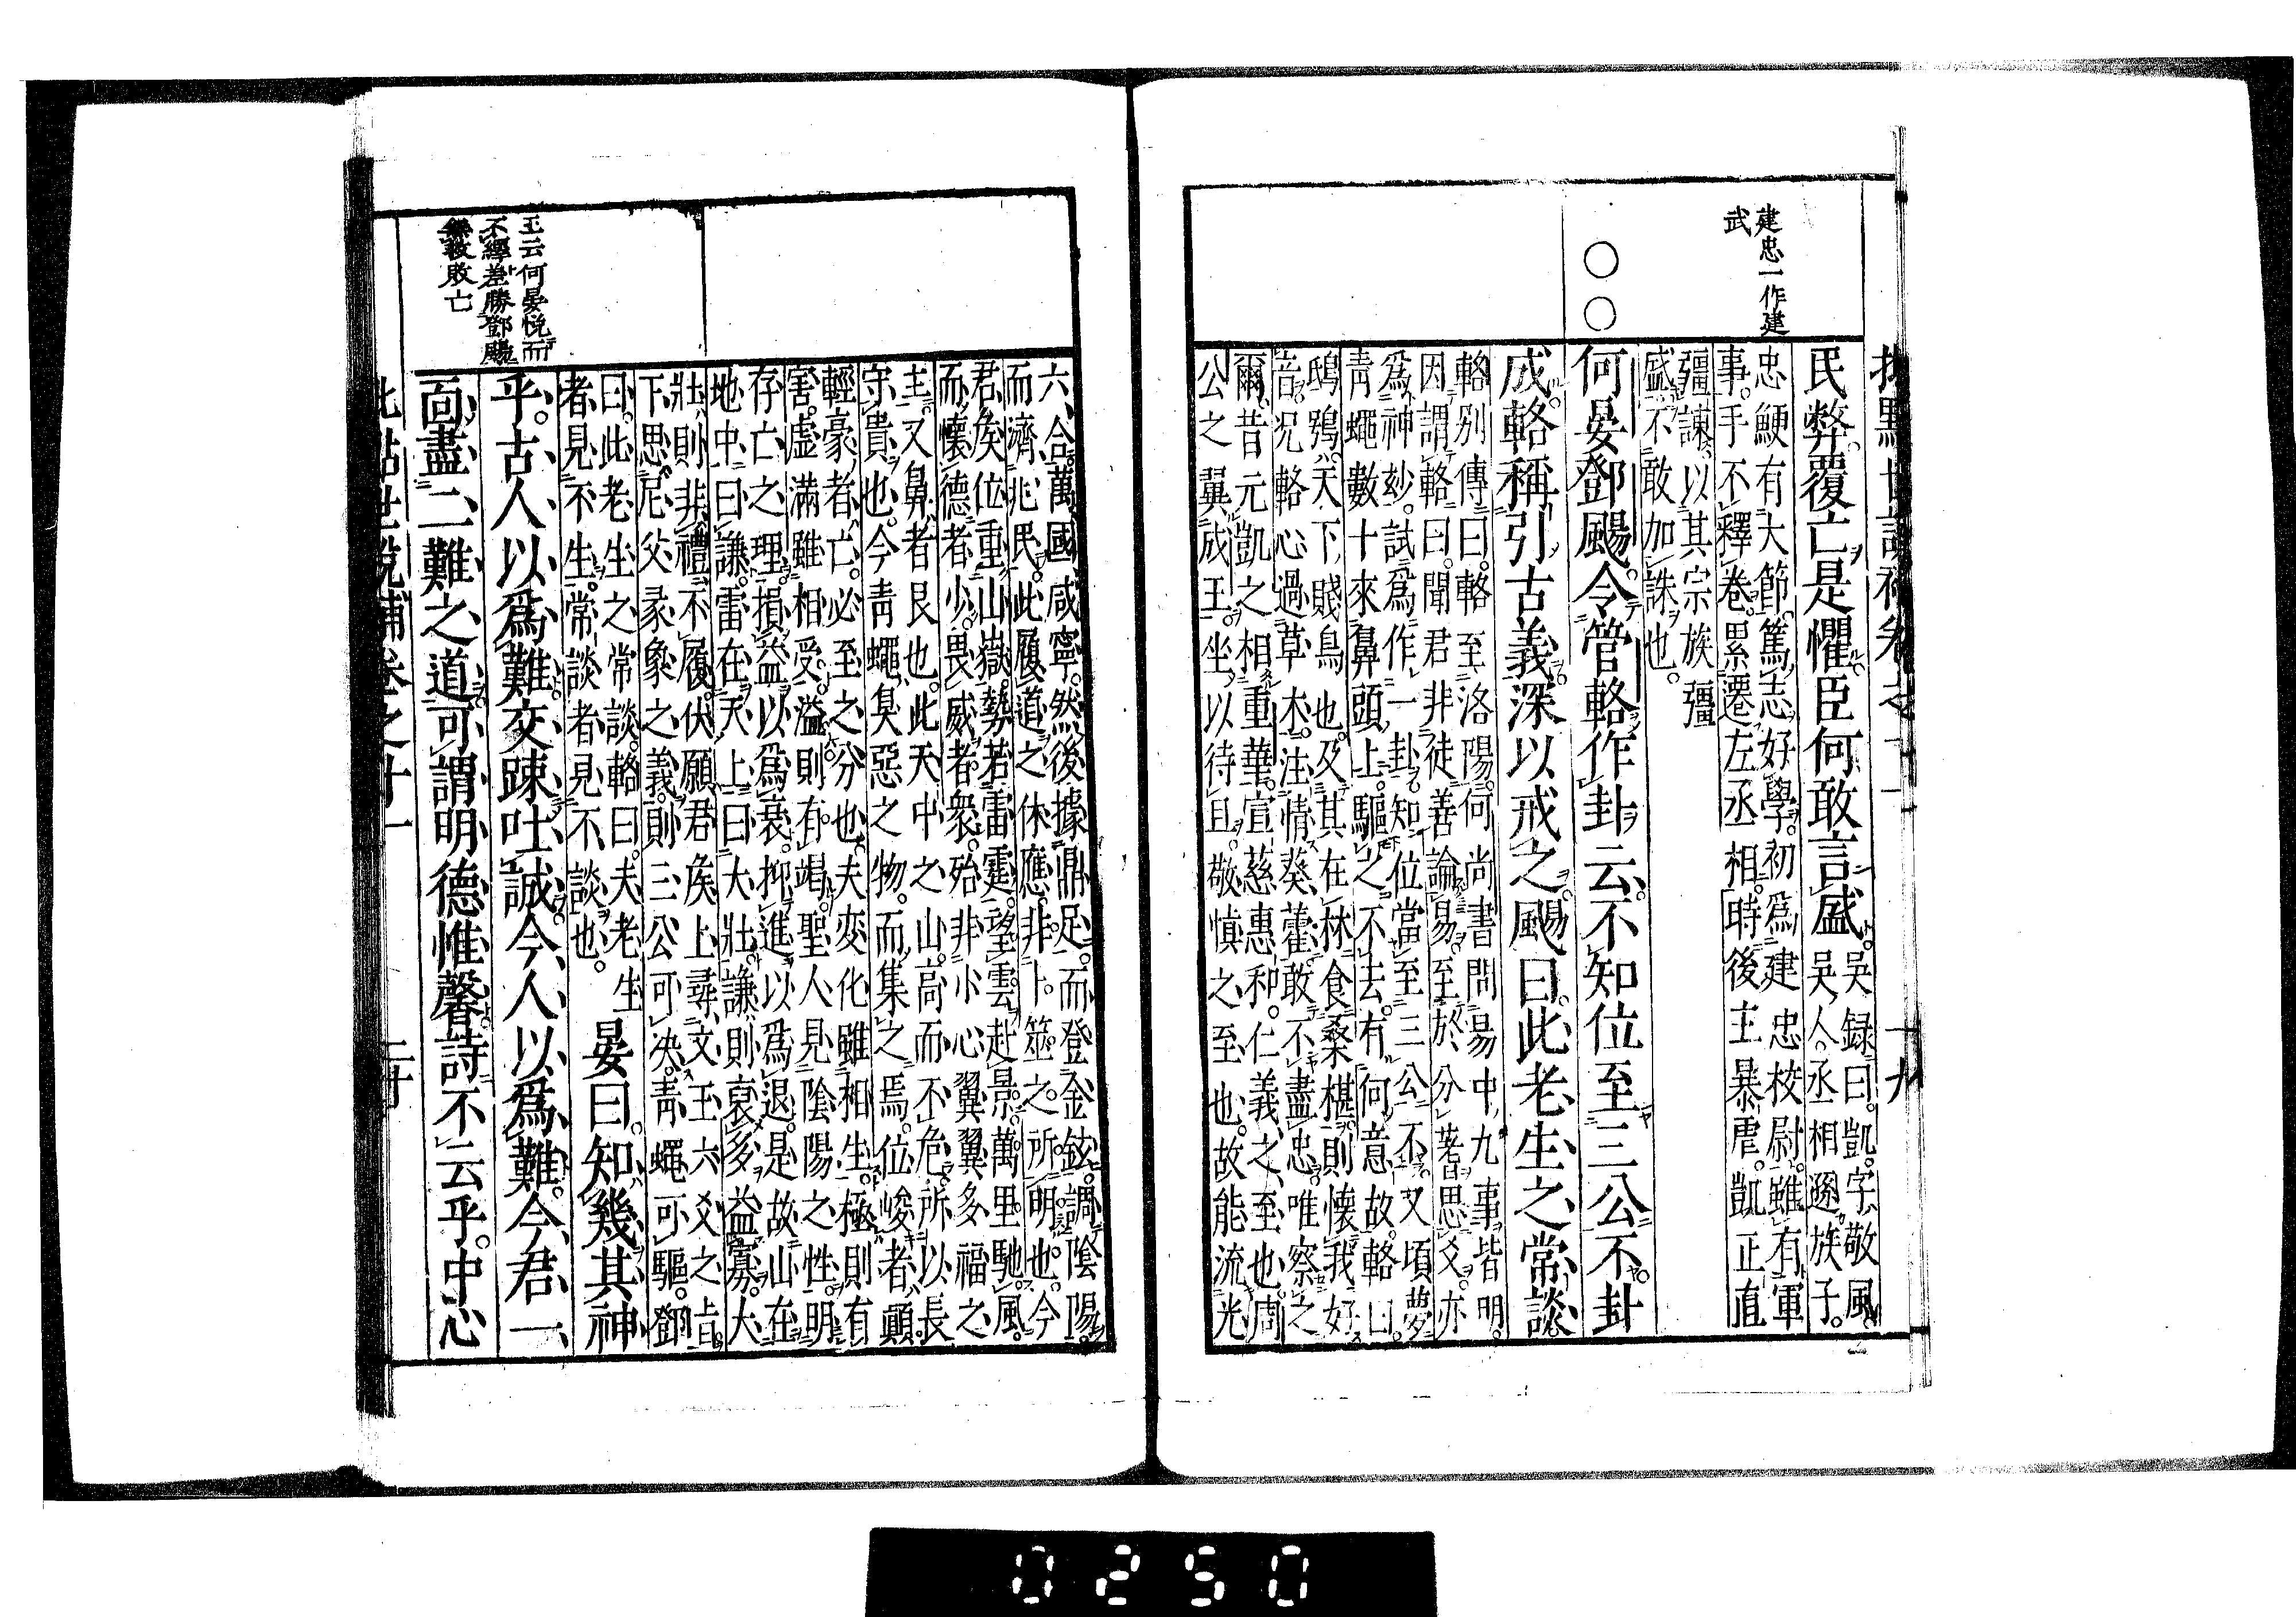 批點世說補卷之十一 十九
建忠一作建
武
民弊覆亡是懼臣何敢言盛。吳録曰。凱字敬風。
吳人。丞相遜族子。
忠鯁有大節。篤志好學。初爲建忠校尉。雖有軍
事。手不釋卷。累遷左丞相。時後主暴虐。凱正直
彊諫。以其宗族彊
盛不敢加誅也。
○○
何晏鄧颺。令管輅作卦云。不知位至三公不卦
成。輅稱引古義。深以戒之。颺曰。此老生之常談。
輅別傳曰。輅至洛陽。何尚書問易中九事皆明。
因謂輅曰。聞君非徒善論易。至於分蓍思爻。亦
爲神妙。試爲作一卦。知位當至三公不。又頃夢
青蠅數十來鼻頭上。驅之不去。有何意故。輅曰。
鴟鴞。天下賤鳥也。及其在林食桑椹。則懷我好
音。况輅心過草木。注情葵藿。敢不盡忠。唯察之
爾。昔元凱之相重華。宣慈惠和。仁義之至也。周
公之翼成王。坐以待旦。敬慎之至也。故能流光
六合。萬國咸寧。然後據鼎足。而登金鉉。調陰陽。
而濟兆民。此履道之休應。非卜筮之所明也。今
君侯位重山嶽。勢若雷霆。望雲赴景。萬里馳風。
而懷德者少。畏威者衆。殆非小心翼翼多福之
主。又鼻者艮也。此天中之山。高而不危。所以長
守貴也。今青蠅臭惡之物。而集之焉。位峻者顛。
輕豪者亡。必至之分也。夫變化雖相生。極則有
害。虛滿雖相受。溢則有竭。聖人見陰陽之性。明
存亡之理。損益以爲衰。抑進以爲退。是故山在
地中曰謙。雷在天上曰大壯。謙則裒多益寡。大
壯則非禮不履。伏願君侯上尋文王六爻之旨。
下思尼父彖象之義。則三公可決。青蠅可驅。鄧
曰。此老生之常談。輅曰。夫老生
者見不生。常談者見不談也。
晏曰。知幾其神
王云何晏悅而
不繹差勝鄧颺
無救敗亡
乎。古人以爲難。交踈吐誠。今人以爲難。今君一
面盡二難之道。可謂明德惟馨。詩不云乎。中心
批點世說補卷之十一 二十
0250